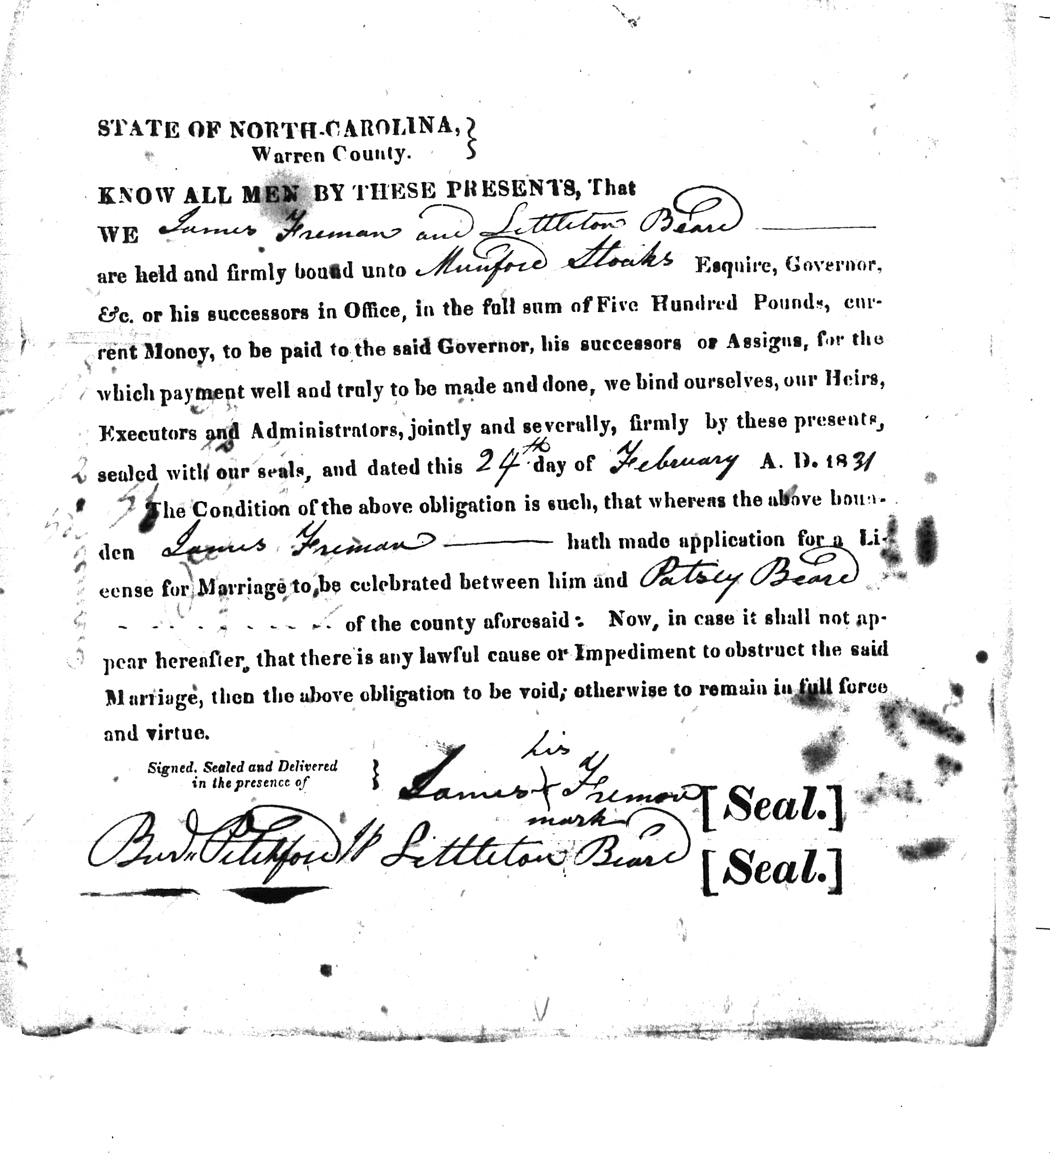 STATE OF NORTH-CAROLINA, }
Warren County.
KNOW ALL MEN BY THESE PRESENTS, That
WE James Freman and Littleton Beard
are held and firmly bound unto Munford Stoaks Esquire, Governor,
&c. or his successors in Office, in the full sum of Five Hundred Pounds, cur-
rent Money, to be paid to the said Governor, his successors or Assigns, for the
which payment well and truly to be made and done, we bind ourselves, our Heirs,
Executors and Administrators, jointly and severally, firmly by these presents,
sealed with our seals, and dated this 24th day of February A. D. 1831
The Condition of the above obligation is such, that whereas the above boun-
den James Freman hath made application for a Li-
cense for Marriage to be celebrated between him and Patsey Beard
of the county aforesaid: Now, in case it shall not ap-
pear hereafter, that there is any lawful cause or Impediment to obstruct the said
Marriage, then the above obligation to be void; otherwise to remain in full force
and virtue.
Signed, Sealed and Delivered }
in the presence of
his
James X Fremon [Seal.]
mark
Pitchford Littleton Beard [Seal.]